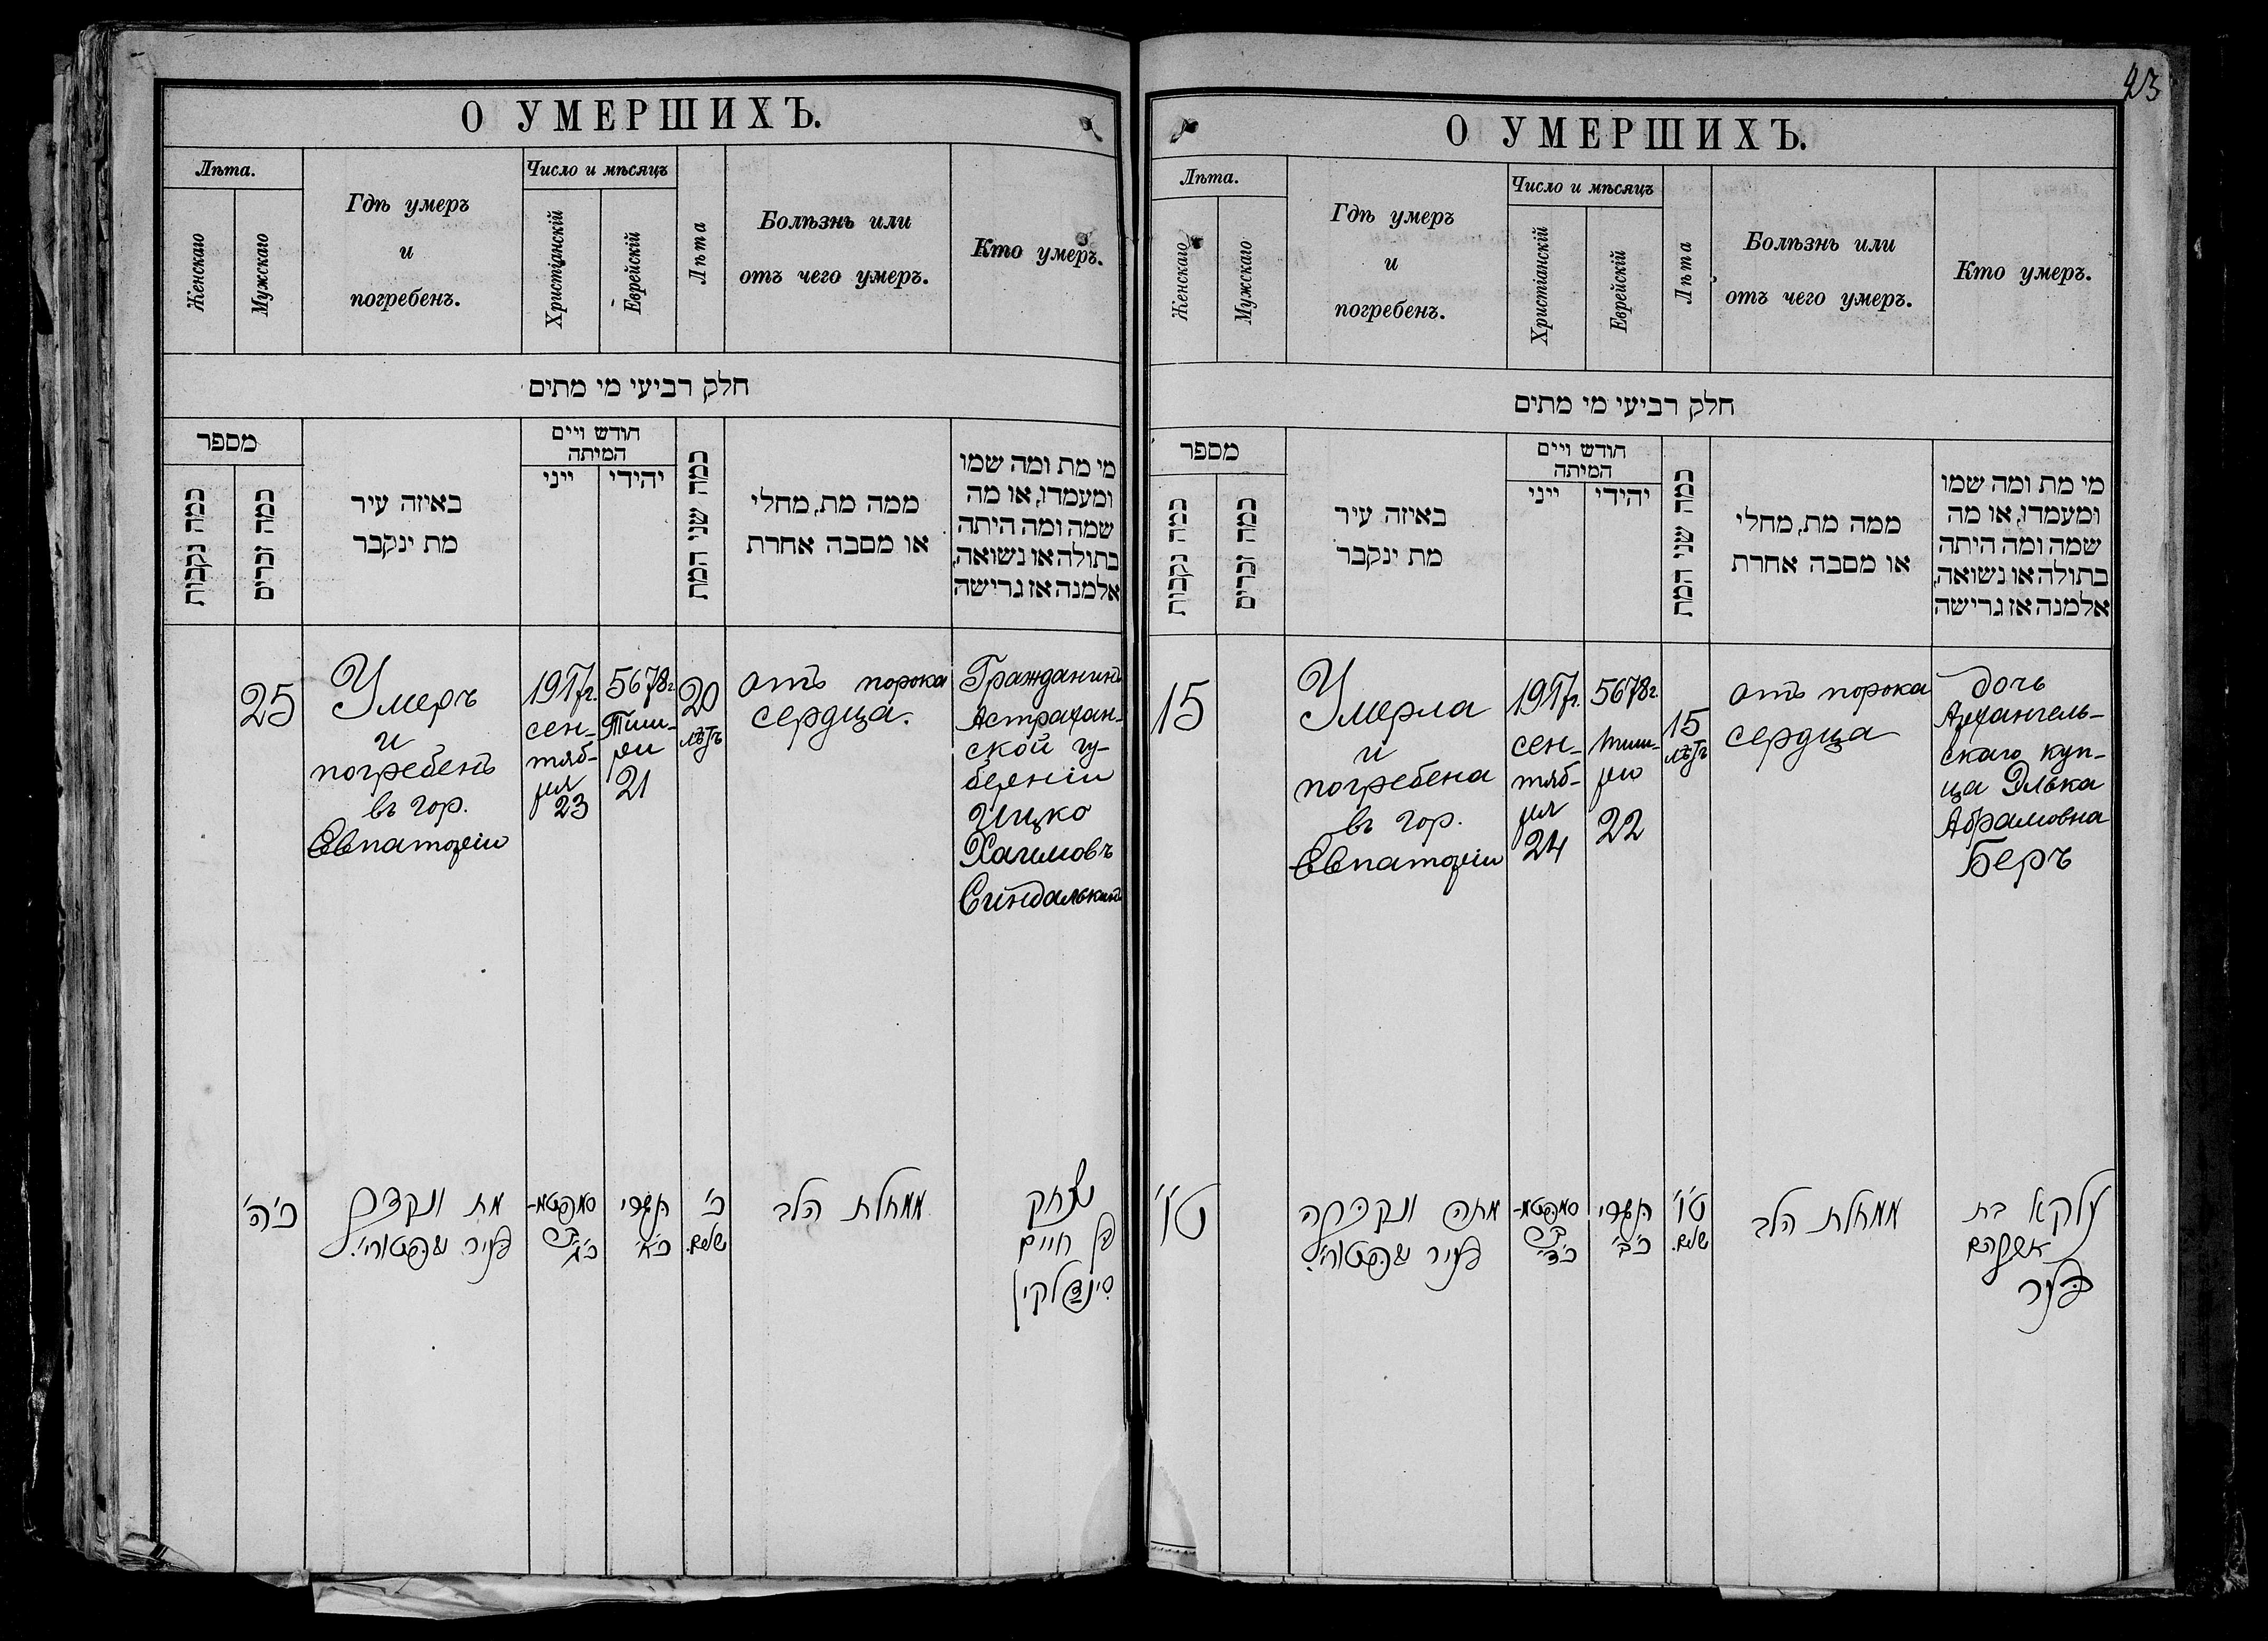 О УМЕРШИХЪ.
Лѣта.
Женскаго
Мужскаго
Гдѣ умеръ
и
погребенъ.
Число и мѣсяцъ
Христіанскій
Еврейскій
Лѣта
Болѣзнь или
отъ чего умеръ.
Кто умеръ.
חלק רביעי מי מתים
מספר
כמה נקבות
כמה זכרים
באיזה עיר
מת ינקבר
חודש ויים
המיתה
ייני
יהידי
כמה שני המת
ממה מת, מחלי
או מסבה אחרת
מי מת ומה שמו
ומעמדו, או מה
שמה ומה היתה
בתולה או נשואה,
אלמנה אז גרישה
25
Умеръ
и
погребенъ
въ гор.
Евпаторіи
1917г.
сен-
тяб-
ря
23
5678г.
Тиш-
ри
21
20
лѣтъ
отъ порока
сердца.
Гражданинъ
Астрахан-
ской гу-
берніи
Ицко
Хаимовъ
Синдалькинъ
כ'ה'
מת ונקבר
בעיר
סעפטמ-
בר
כ'ג'
תשרי
כ'א'
כ'
שנים.
ממחלת הלב
יצחק
בן חיים
סינדלקין
23
О УМЕРШИХЪ.
Лѣта.
Женскаго
Мужскаго
Гдѣ умеръ
и
погребенъ.
Число и мѣсяцъ
Христіанскій
Еврейскій
Лѣта
Болѣзнь или
отъ чего умеръ.
Кто умеръ.
חלק רביעי מי מתים
מספר
כמה נקבות
כמה זכרים
באיזה עיר
מת ינקבר
חודש ויים
המיתה
ייני
יהידי
כמה שני המת
ממה מת, מחלי
או מסבה אחרת
מי מת ומה שמו
ומעמדו, או מה
שמה ומה היתה
בתולה או נשואה,
אלמנה אז גרישה
15
Умерла
и
погребена
въ гор.
Евпаторіи
1917г.
сен-
тяб-
ря
24
5678г.
тиш-
рю
22
15
лѣтъ
отъ порока
сердца
дочь
Архангель-
скаго куп-
ца Элька
Абрамовна
Беръ
ט'ו'
מתה ונקברה
בעיר
סעפטמ-
בר
כ'ד'
תשרי
כ'ב'
ט'ו'
שנים.
ממחלת הלב
עלקא בת
אברהם
בער